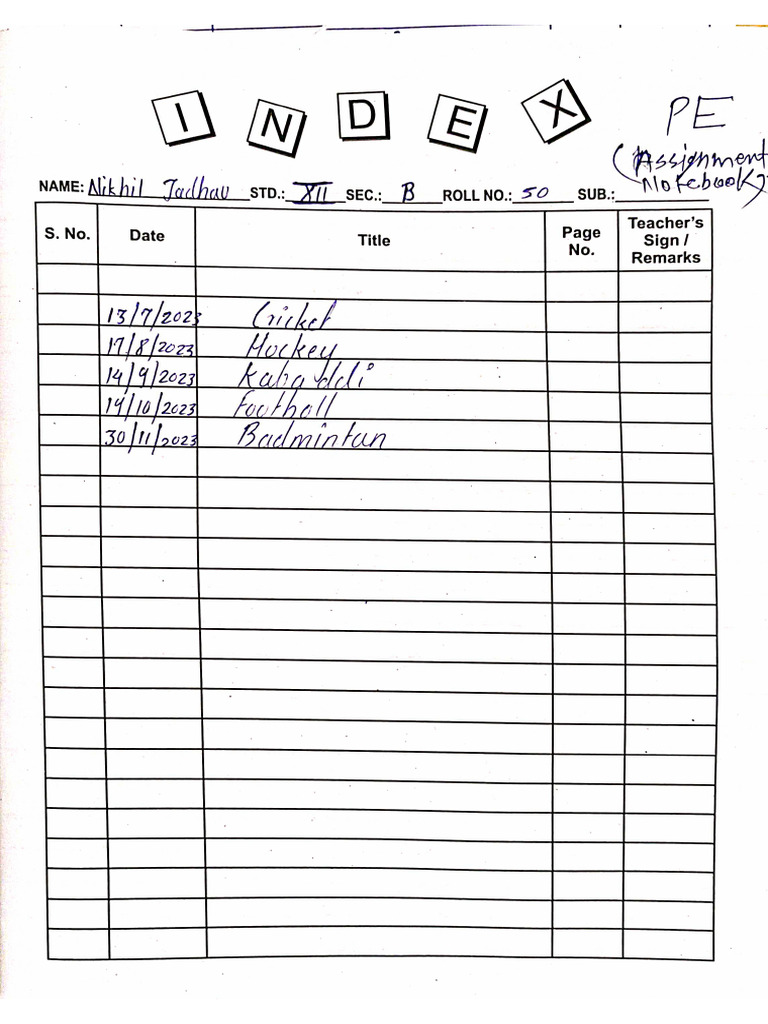 INDEX
PE
(Assignment
Notebook)
NAME: Nikhil Jadhav STD.: XII SEC.: B ROLL NO.: 50 SUB.:
S. No. Date Title Page No. Teacher's Sign / Remarks
13/7/2023 Cricket
17/8/2023 Hockey
14/9/2023 Kabaddi
19/10/2023 Football
30/11/2023 Badmintan